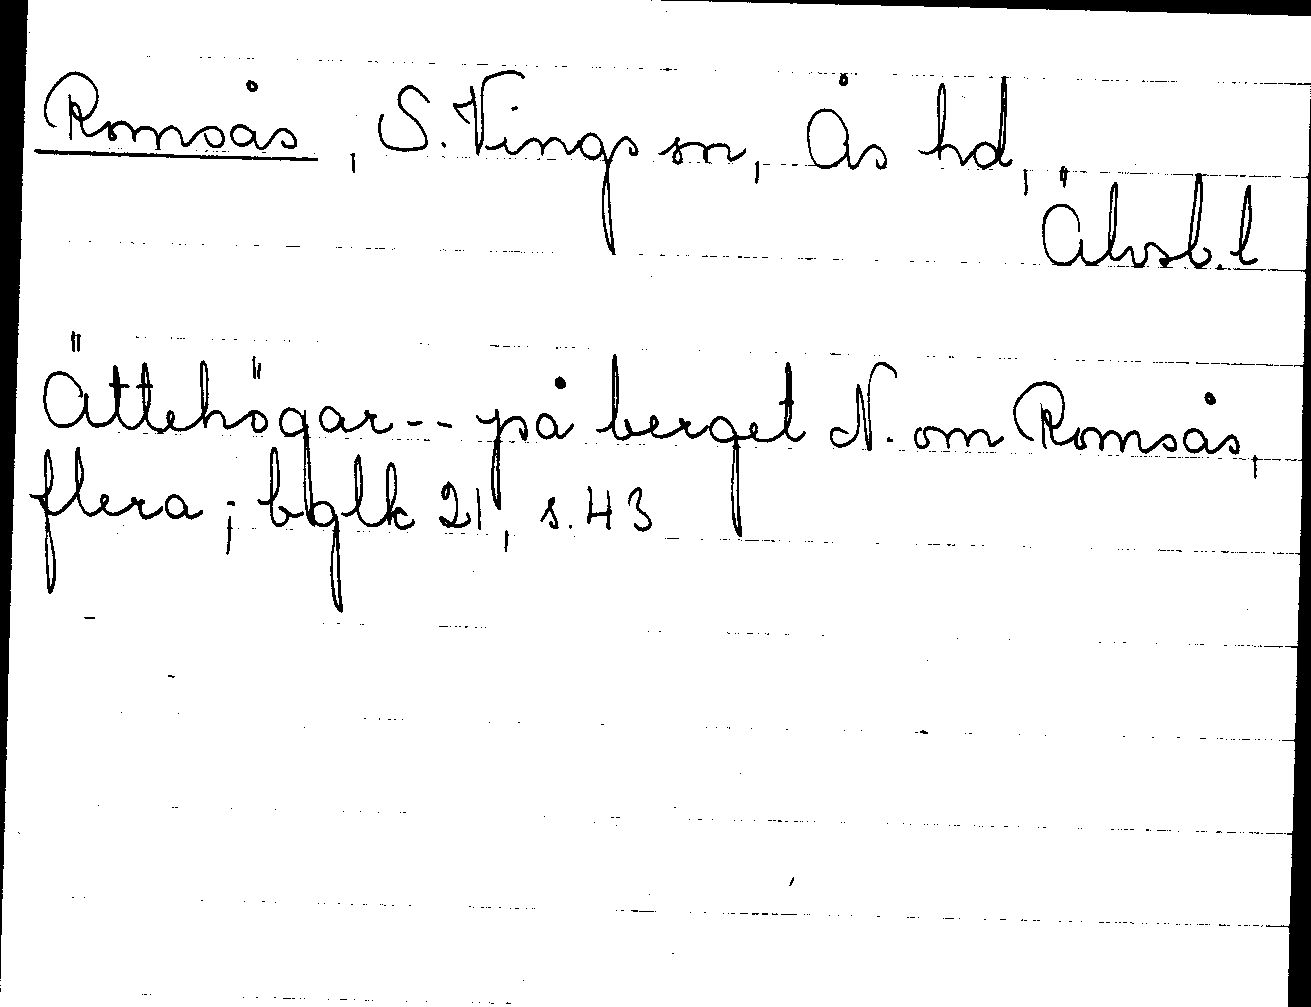 Romsås, S. Vings sn, Ås hd,
Älvsb. l
Ättehögar -- på berget N. om Romsås,
flera; bglk 21, s. 43